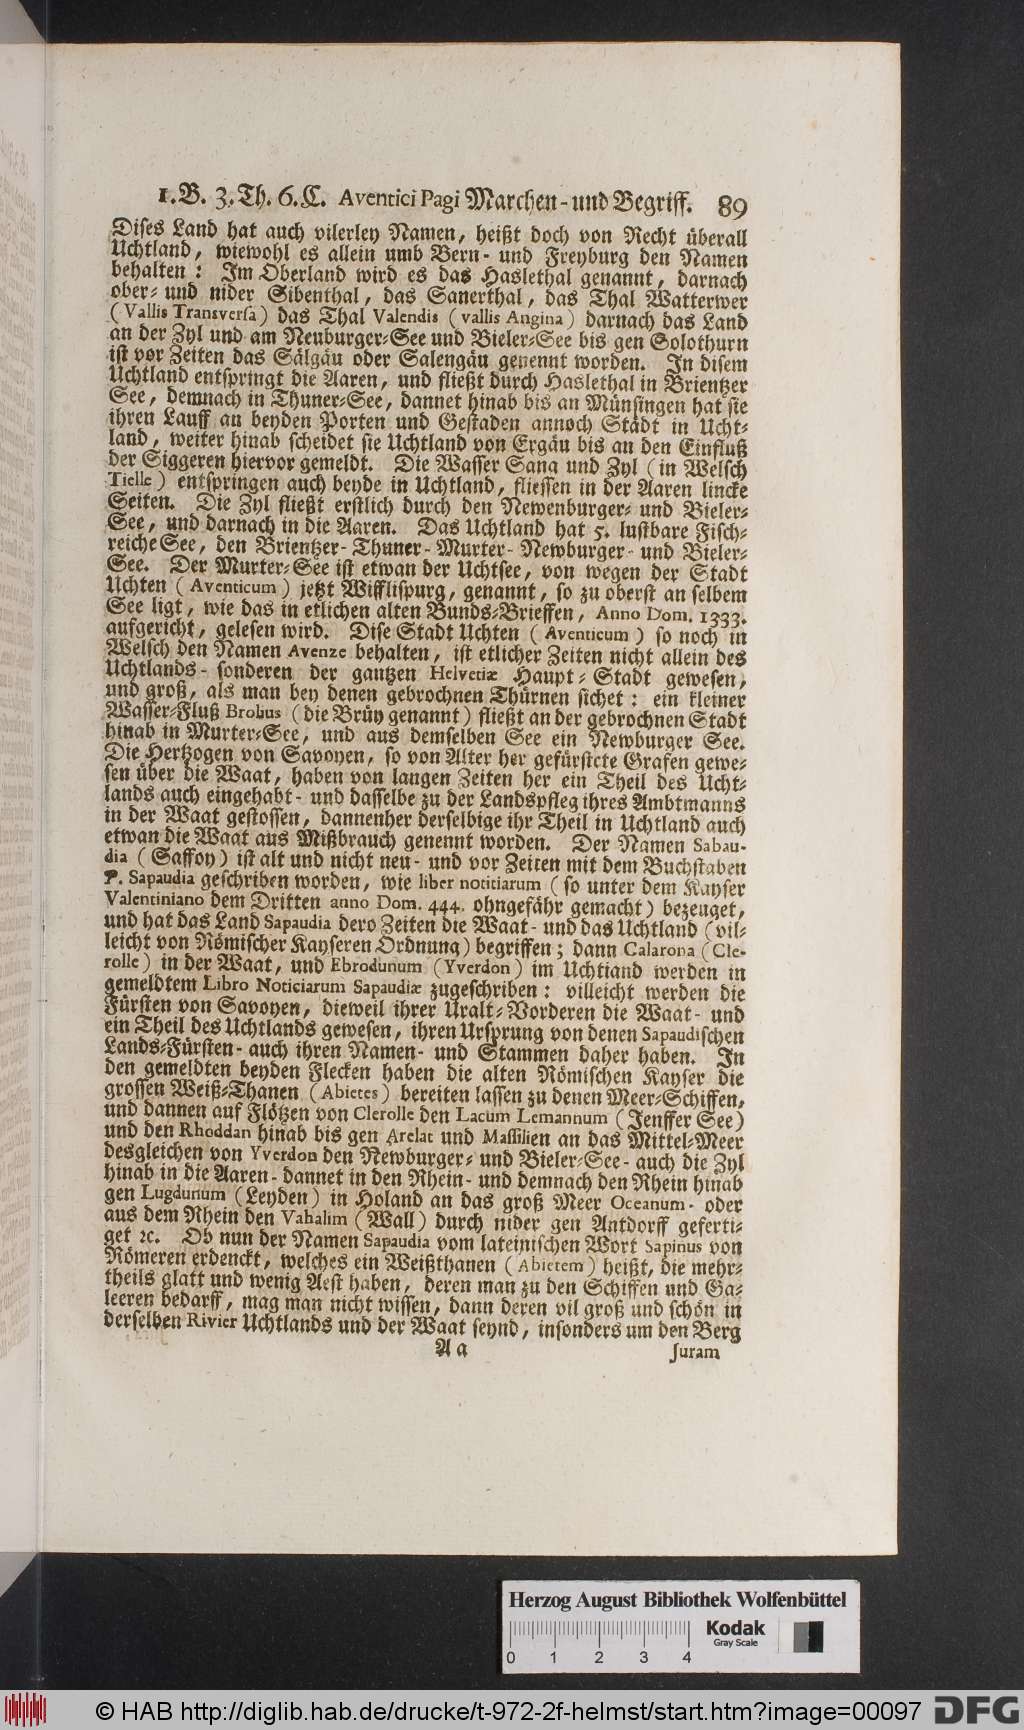 1. B. 3. Th. 6. C. Aventici Pagi Marchen- und Begriff. 89
Dises Land hat auch vilerley Namen, heißt doch von Recht überall
Uchtland, wiewohl es allein umb Bern- und Freyburg den Namen
behalten: Im Oberland wird es das Haslethal genannt, darnach
ober- und nider Sibenthal, das Sanerthal, das Thal Watterwer
(Vallis Transversa) das Thal Valendis (vallis Angina) darnach das Land
an der Zyl und am Neuburger-See und Bieler-See bis gen Solothurn
ist vor Zeiten das Sälgäu oder Salengäu genennt worden. In disem
Uchtland entspringt die Aaren, und fließt durch Haslethal in Brientzer
See, demnach in Thuner-See, dannet hinab bis an Münsingen hat sie
ihren Lauff an beyden Porten und Gestaden annoch Städt in Ucht-
land, weiter hinab scheidet sie Uchtland von Ergäu bis an den Einfluß
der Siggeren hiervor gemeldt. Die Wasser Sana und Zyl (in Welsch
Tielle) entspringen auch beyde in Uchtland, fliessen in der Aaren lincke
Seiten. Die Zyl fließt erstlich durch den Newenburger- und Bieler-
See, und darnach in die Aaren. Das Uchtland hat 5. lustbare Fisch-
reiche See, den Brientzer- Thuner- Murter- Newburger- und Bieler-
See. Der Murter-See ist etwan der Uchtsee, von wegen der Stadt
Uchten (Aventicum) jetzt Wifflispurg, genannt, so zu oberst an selbem
See ligt, wie das in etlichen alten Bunds-Brieffen, Anno Dom. 1333.
aufgericht, gelesen wird. Dise Stadt Uchten (Aventicum) so noch in
Welsch den Namen Avenze behalten, ist etlicher Zeiten nicht allein des
Uchtlands- sonderen der gantzen Helvetiæ Haupt-Stadt gewesen,
und groß, als man bey denen gebrochnen Thürnen sichet: ein kleiner
Wasser-Fluß Brobus (die Brüy genannt) fließt an der gebrochnen Stadt
hinab in Murter-See, und aus demselben See ein Newburger See.
Die Hertzogen von Savoyen, so von Alter her gefürstete Grafen gewe-
sen über die Waat, haben von langen Zeiten her ein Theil des Ucht-
lands auch eingehabt- und dasselbe zu der Landspfleg ihres Ambtmanns
in der Waat gestossen, dannenher derselbige ihr Theil in Uchtland auch
etwan die Waat aus Mißbrauch genennt worden. Der Namen Sabau-
dia (Saffoy) ist alt und nicht neu- und vor Zeiten mit dem Buchstaben
P. Sapaudia geschriben worden, wie liber notitiarum (so unter dem Kayser
Valentiniano dem Dritten anno Dom. 444. ohngefähr gemacht) bezeuget,
und hat das Land Sapaudia dero Zeiten die Waat- und das Uchtland (vil-
leicht von Römischer Kayseren Ordnung) begriffen; dann Calarona (Cle-
rolle) in der Waat, und Ebrodunum (Yverdon) im Uchtland werden in
gemeldtem Libro Noticiarum Sapaudiæ zugeschriben: villeicht werden die
Fürsten von Savoyen, dieweil ihrer Uralt-Vorderen die Waat- und
ein Theil des Uchtlands gewesen, ihren Ursprung von denen Sapaudischen
Lands-Fürsten- auch ihren Namen- und Stammen daher haben. In
den gemeldten beyden Flecken haben die alten Römischen Kayser die
grossen Weiß-Thanen (Abietes) bereiten lassen zu denen Meer-Schiffen,
und dannen auf Flötzen von Clerolle den Lacum Lemannum (Jenffer See)
und den Rhoddan hinab bis gen Arelat und Massilien an das Mittel-Meer
desgleichen von Yverdon den Newburger- und Bieler-See- auch die Zyl
hinab in die Aaren- dannet in den Rhein- und demnach den Rhein hinab
gen Lugdunum (Leyden) in Holand an das groß Meer Oceanum- oder
aus dem Rhein den Vahalim (Wall) durch nider gen Antdorff geferti-
get ꝛc. Ob nun der Namen Sapaudia vom lateinischen Wort Sapinus von
Römeren erdenckt, welches ein Weißthanen (Abietem) heißt, die mehr-
theils glatt und wenig Aest haben, deren man zu den Schiffen und Ga-
leeren bedarff, mag man nicht wissen, dann deren vil groß und schön in
derselben Rivier Uchtlands und der Waat seynd, insonders um den Berg
Aa Juram
Herzog August Bibliothek Wolfenbüttel
Kodak
Gray Scale
0 1 2 3 4
© HAB http://diglib.hab.de/drucke/t-972-2f-helmst/start.htm?image=00097 DFG